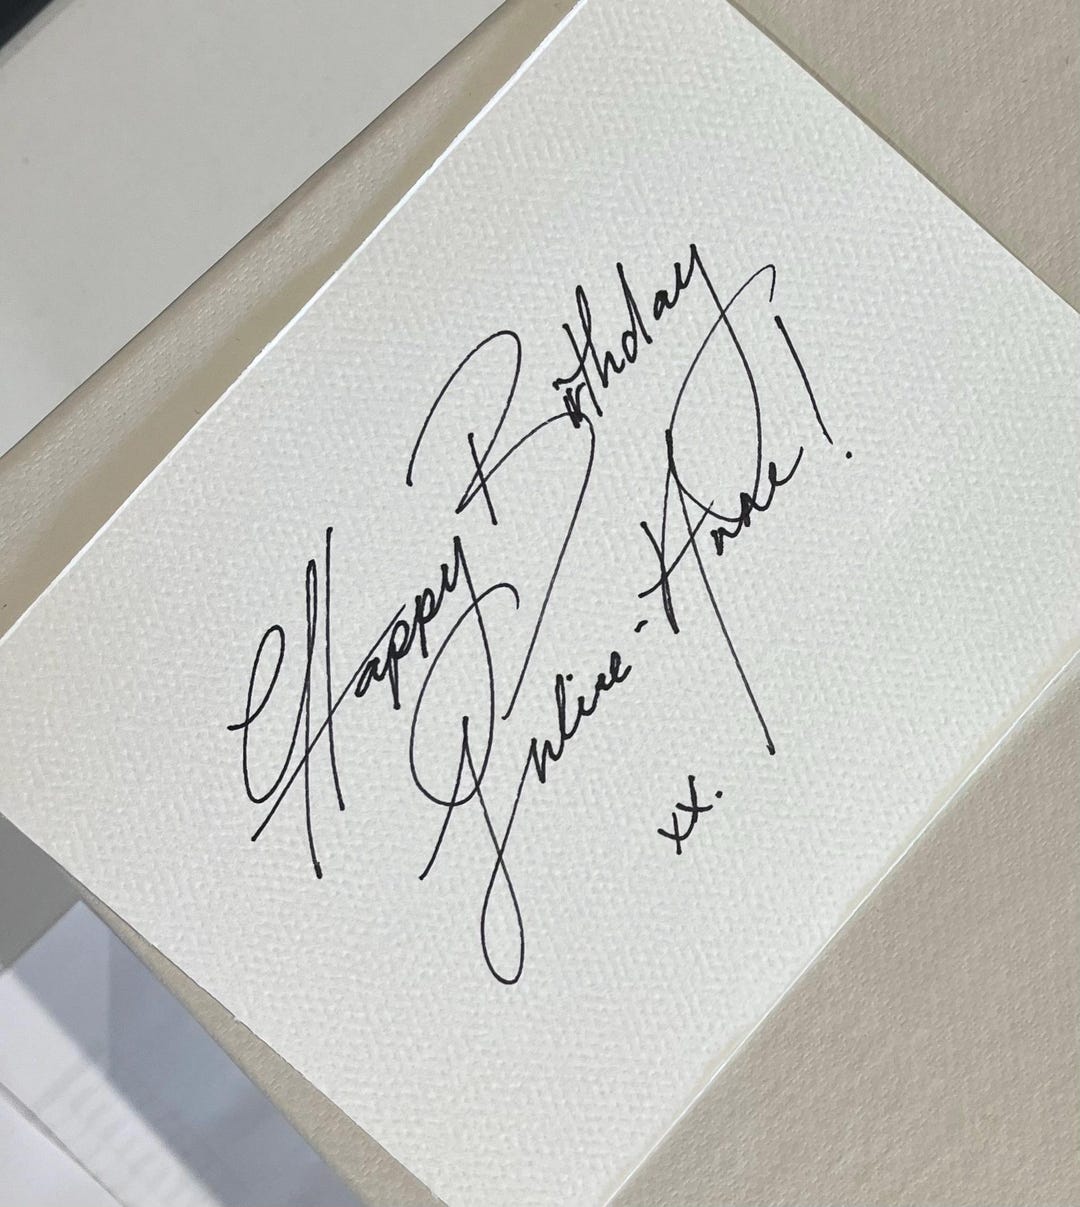 Happy Birthday
Julie-Anne!
xx.